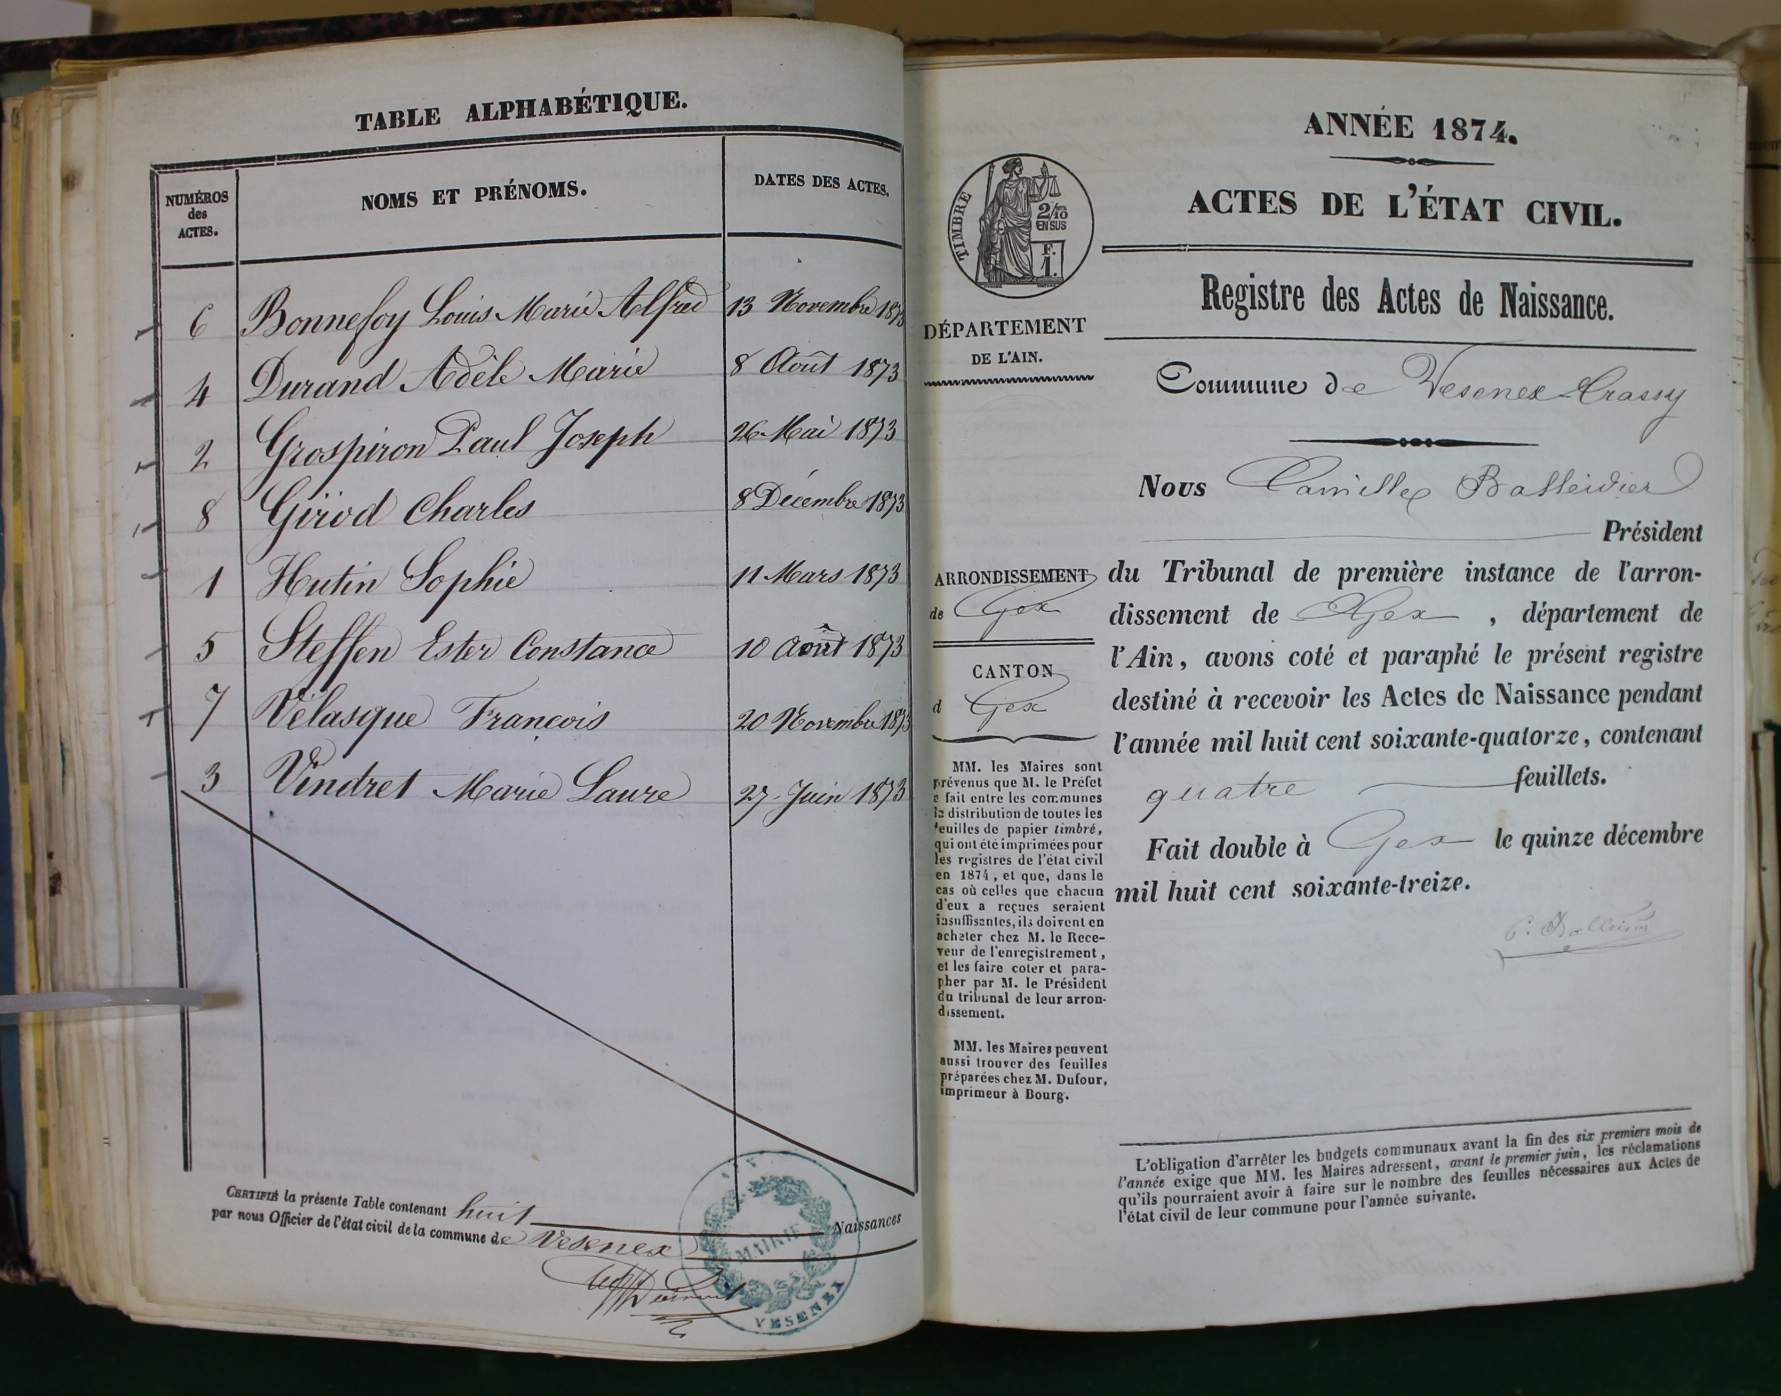 TABLE ALPHABÉTIQUE.
NUMÉROS des ACTES. NOMS ET PRÉNOMS. DATES DES ACTES.
6 Bonnefoy Louis Marie Alfred 13 Novembre 1873
4 Durand Adèle Marie 8 Août 1873
2 Grospiron Paul Joseph 26 Mai 1873
8 Girod Charles 8 Décembre 1873
1 Hutin Sophie 11 Mars 1873
5 Steffen Ester Constance 10 Août 1873
7 Vélasque François 20 Novembre 1873
3 Vindret Marie Laure 27 Juin 1873
CERTIFIÉ la présente Table contenant huit Naissances
par nous Officier de l'état civil de la commune de Vesenex
MAIRIE
VESENEX
ANNÉE 1874.
ACTES DE L'ÉTAT CIVIL.
TIMBRE
2/10
EN SUS
F.
1.
Registre des Actes de Naissance.
DÉPARTEMENT
DE L'AIN.
Commune de Vesenex Crassy
Nous Camille Balleidier
Président
du Tribunal de première instance de l'arron-
dissement de Gex, département de
l'Ain, avons coté et paraphé le présent registre
destiné à recevoir les Actes de Naissance pendant
l'année mil huit cent soixante-quatorze, contenant
quatre feuillets.
Fait double à Gex le quinze décembre
mil huit cent soixante-treize.
ARRONDISSEMENT
de Gex
CANTON
d Gex
MM. les Maires sont
prévenus que M. le Préfet
a fait entre les communes
la distribution de toutes les
feuilles de papier timbré,
qui ont été imprimées pour
les registres de l'état civil
en 1874, et que, dans le
cas où celles que chacun
d'eux a reçues seraient
insuffisantes, ils doivent en
acheter chez M. le Rece-
veur de l'enregistrement,
et les faire coter et para-
pher par M. le Président
du tribunal de leur arron-
dissement.
MM. les Maires peuvent
aussi trouver des feuilles
préparées chez M. Dufour,
imprimeur à Bourg.
L'obligation d'arrêter les budgets communaux avant la fin des six premiers mois de
l'année exige que MM. les Maires adressent, avant le premier juin, les réclamations
qu'ils pourraient avoir à faire sur le nombre des feuilles nécessaires aux Actes de
l'état civil de leur commune pour l'année suivante.